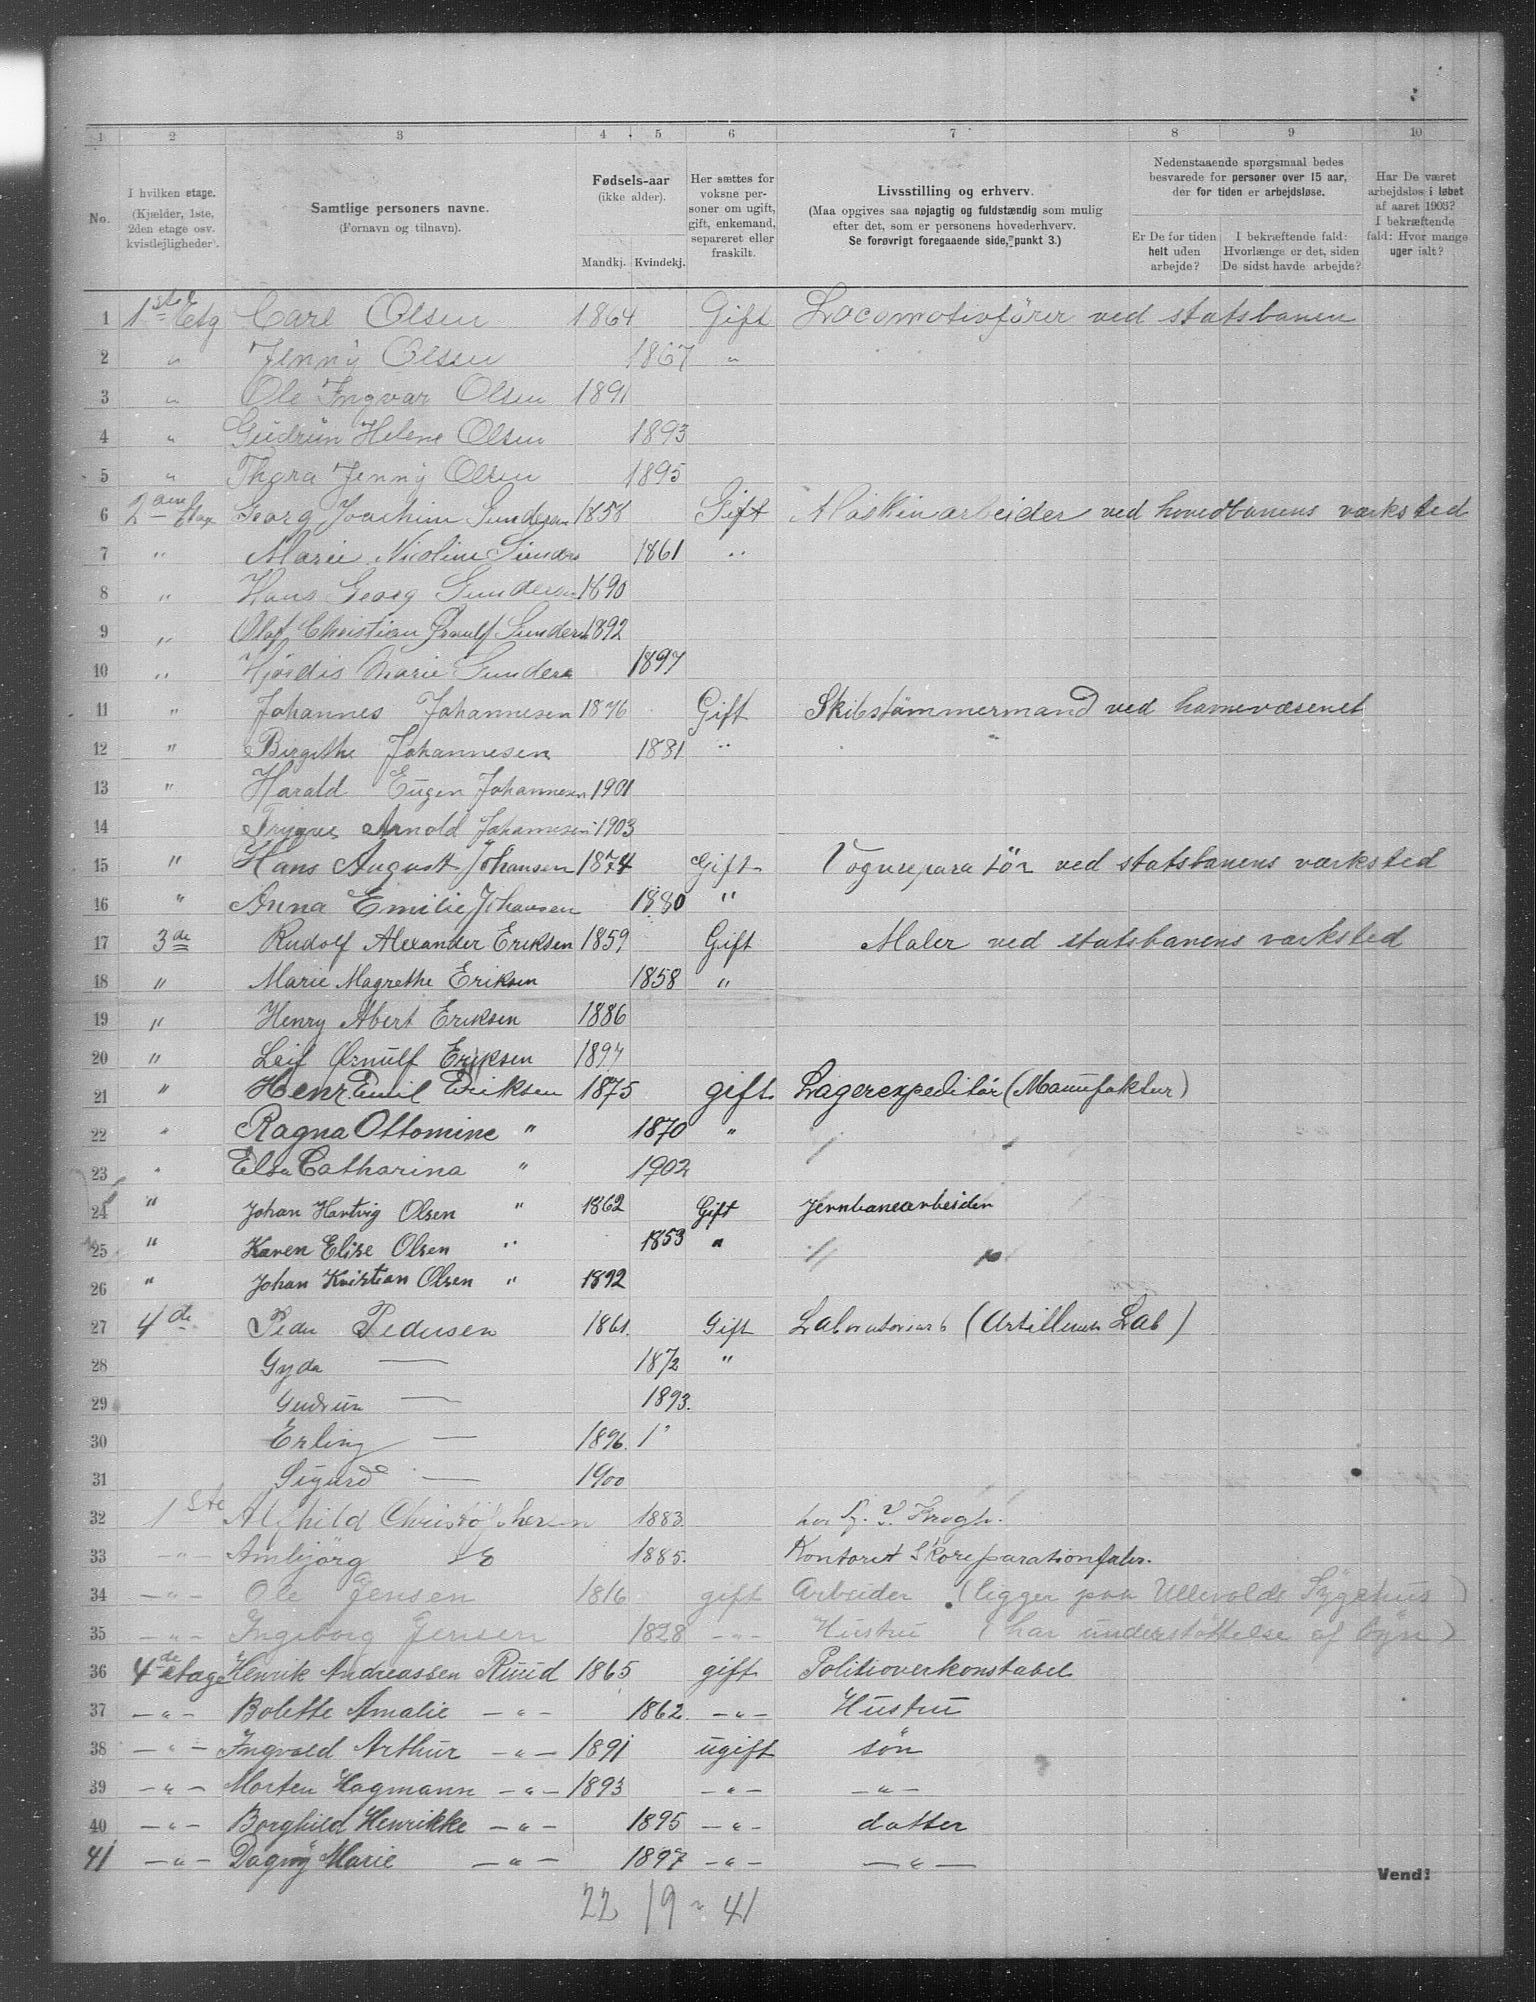 1 2 3 4 5 6 7 8 9 10
No.
I hvilken etage.
(Kjælder, 1ste,
2den etage osv.
kvistlejligheder).
Samtlige personers navne.
(Fornavn og tilnavn).
Fødsels-aar
(ikke alder).
Mandkj. Kvindekj.
Her sættes for
voksne per-
soner om ugift,
gift, enkemand,
separeret eller
fraskilt.
Livsstilling og erhverv.
(Maa opgives saa nøjagtig og fuldstændig som mulig
efter det, som er personens hovederhverv.
Se forøvrigt foregaaende side, punkt 3.)
Nedenstaaende spørgsmaal bedes
besvarede for personer over 15 aar,
der for tiden er arbejdsløse.
Er De for tiden
helt uden
arbejde?
I bekræftende fald:
Hvorlænge er det, siden
De sidst havde arbejde?
Har De været
arbejdsløs i løbet
af aaret 1903?
I bekræftende
fald: Hvor mange
uger ialt?
1 1ste Etg Carl Olsen 1864 Gift Locomotivfører ved statsbanen
2 " Jenny Olsen 1867 "
3 " Ole Ingvar Olsen 1891
4 " Gudrun Helene Olsen 1893
5 " Thora Jenny Olsen 1895
6 2den Etage Georg Joachim Gundersen 1858 Gift Maskinarbeider ved hovedbanens værksted
7 " Marie Nicoline Gunders 1861 "
8 " Hans Georg Gundersen 1890
9 " Olaf Christian Gunders 1892
10 " Hjørdis Marie Gunders 1897
11 " Johannes Johannesen 1876 Gift Skibstømmermand ved havnevæsenet
12 " Birgithe Johannesen 1881 "
13 " Harald Eugen Johannesen 1901
14 Trygve Arnold Johannesen 1903
15 " Hans August Johansen 1874 Gift Vognreparatør ved statsbanens værksted
16 " Anna Emilie Johansen 1880 "
17 3de Rudolf Alexander Eriksen 1859 Gift Maler ved statsbanens værksted
18 " Marie Magrethe Eriksen 1858 "
19 " Henry Abert Eriksen 1886
20 " Leif Ørnulf Eriksen 1897
21 " Henr Emil Eriksen 1875 gift Lagerexpeditør (Manufaktur)
22 " Ragna Ottomine " 1870 "
23 " Elsa Catharina " 1902
24 " Johan Hartvig Olsen " 1862 Gift Jernbanearbeider
25 " Karen Elise Olsen " 1853 "
26 " Johan Kristian Olsen " 1892
27 4de Peder Pedersen 1861. Gift Laboratoriarb (Artilleriets Lab)
28 Gyda — 1872 "
29 Gudrun — 1893.
30 Erling — 1896. 1"
31 Sigurd — 1900
32 1ste Alfhild Christophersen 1883. hos Krogh.
33 -"- Ambjörg Do 1885. Kontoret Skoreparationfabr.
34 -"- Ole Jensen 1816 gift Arbeider (ligger paa Ullevolds Sygehus)
35 -"- Ingeborg Jensen 1828 -"- Hustru (har understøttelse af byn)
36 4de etage Henrik Andreassen Ruud 1865 gift Politioverkonstabel
37 -"- Bolette Amalie -"- 1862. -"- Hustru
38 -"- Ingvald Arthur -"- 1891 ugift søn
39 -"- Morten Hagmann -"- 1893 -"- -"-
40 -"- Borghild Henrikke -"- 1895 -"- datter
41 -"- Dagny Marie -"- 1897 -"- -"-
Vend!
22 19 - 41